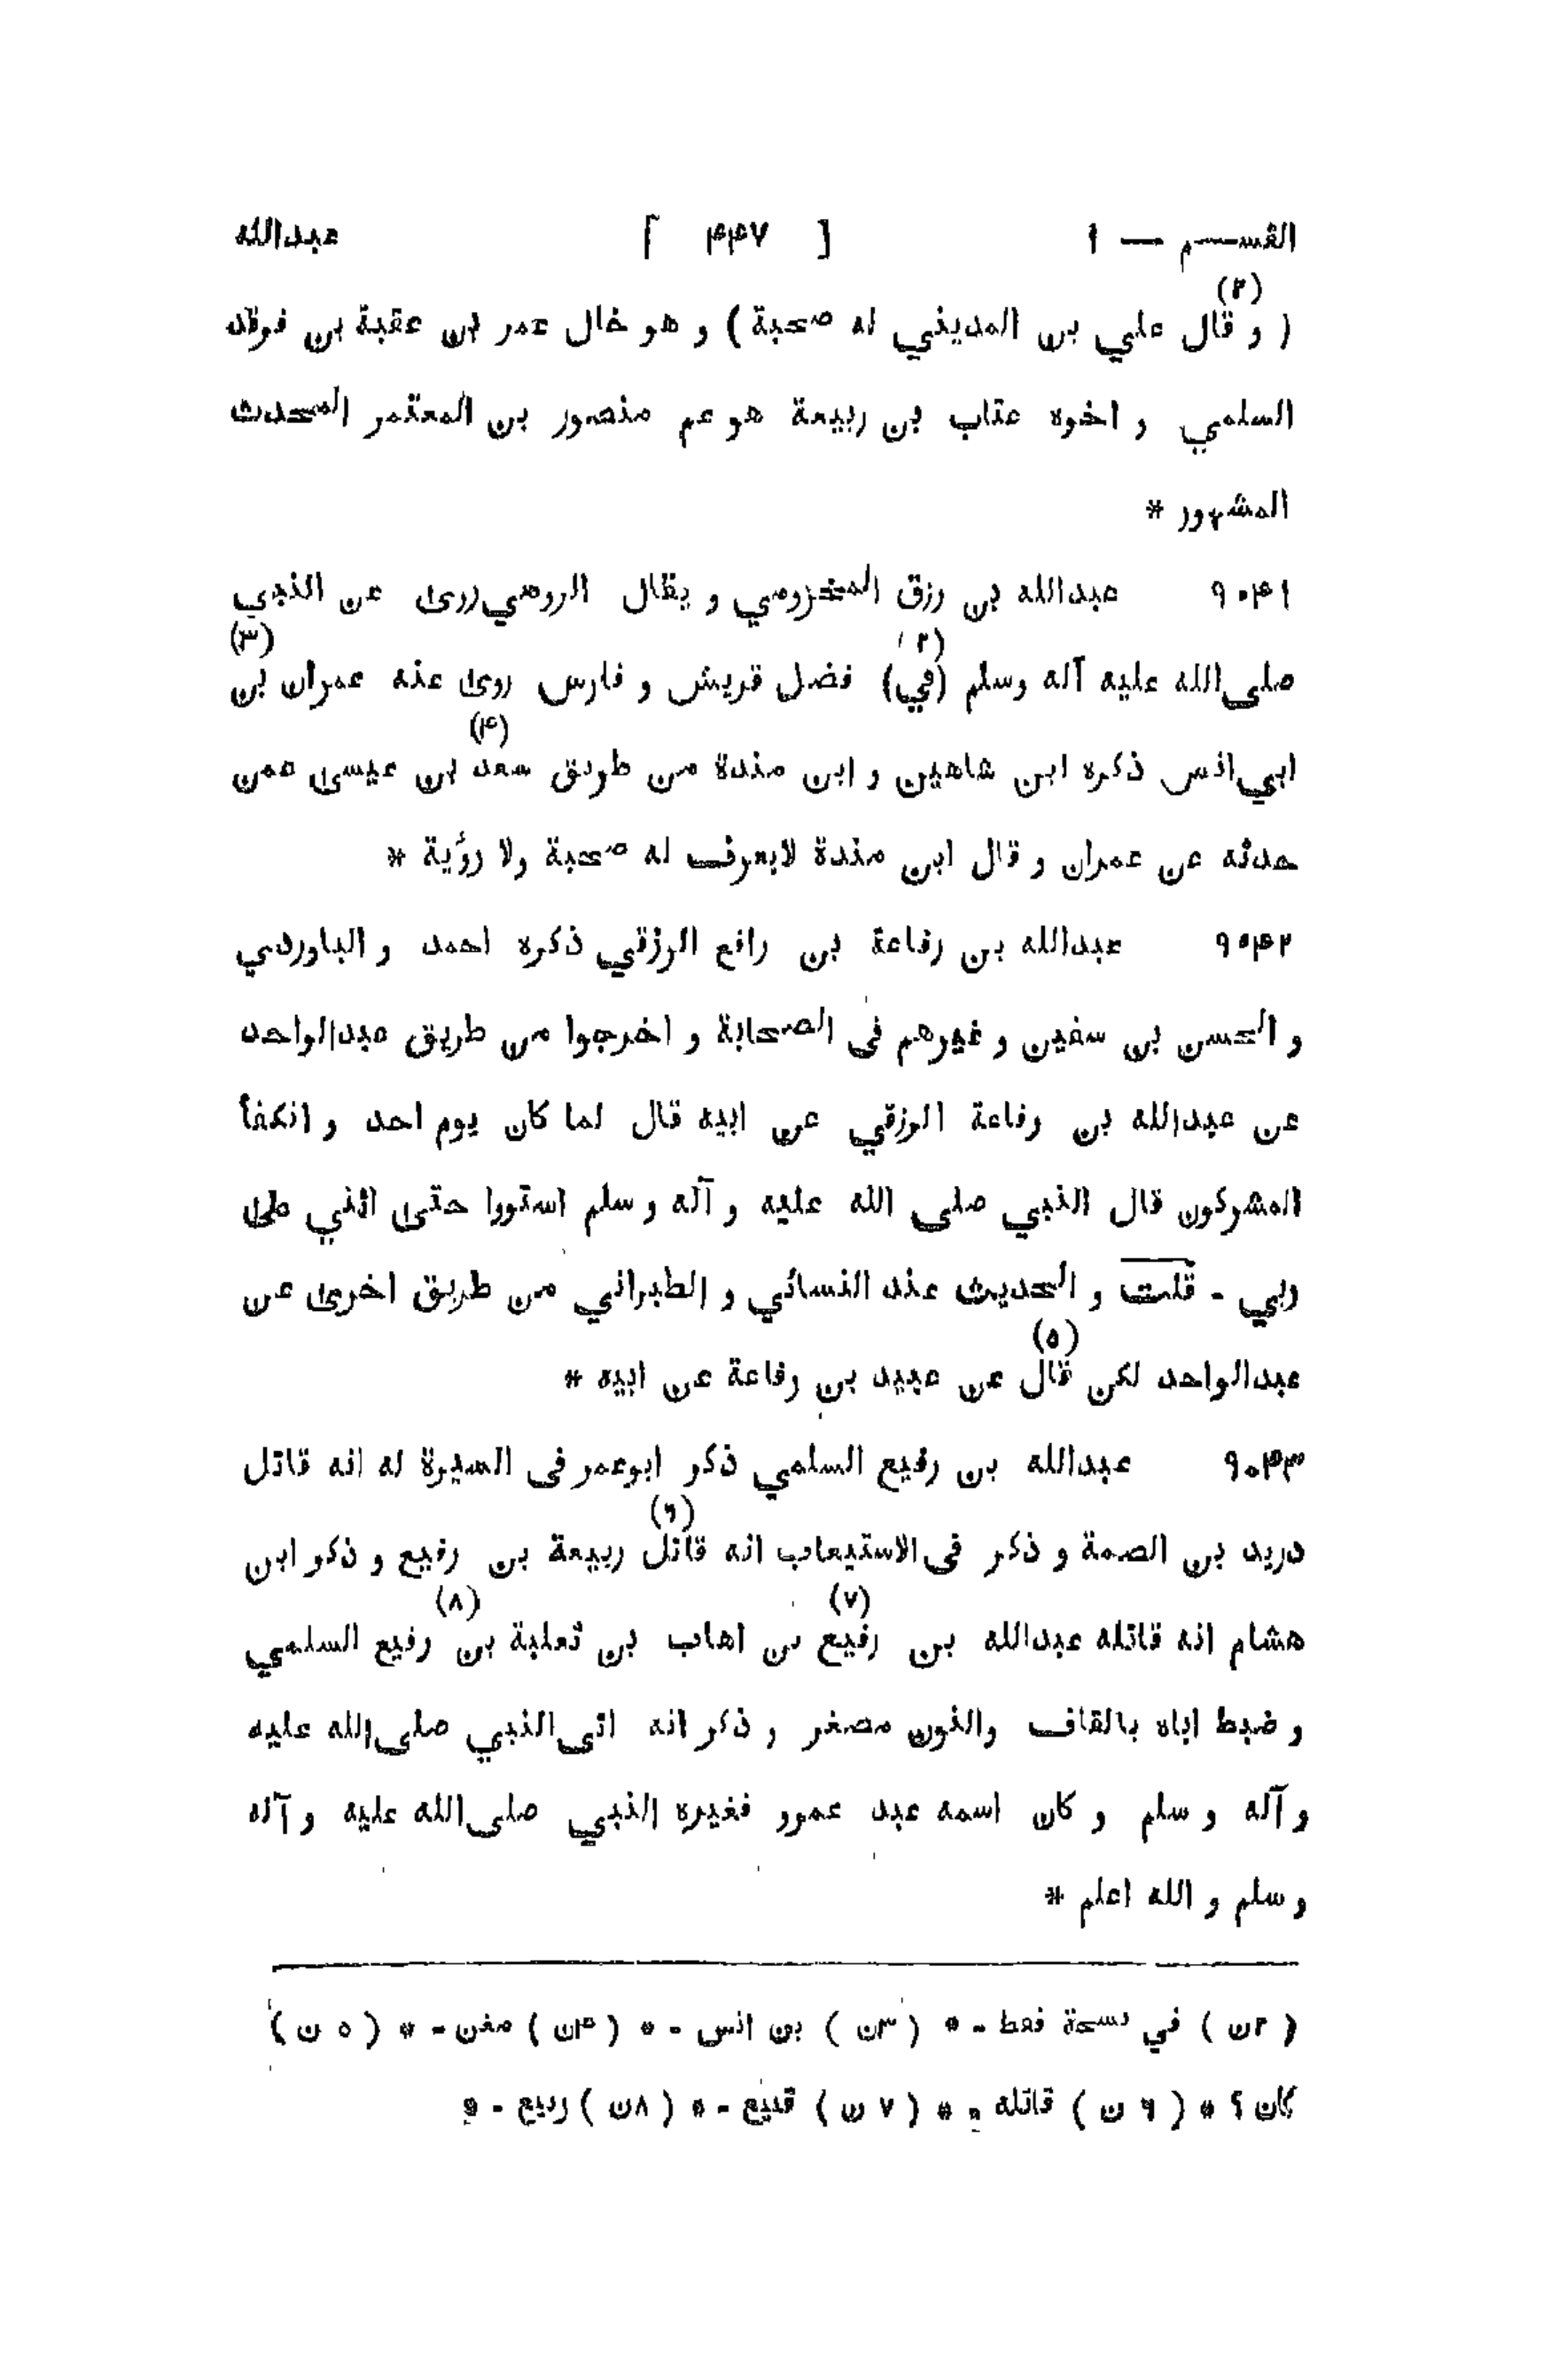 القسم — ١ [ ٤٤٧ ] عبدالله
(٢)
( و قال علي بن المديني له صحبة ) و هو خال عمر بن عقبة بن فرقد
السلمي و اخوه عتاب بن ربيعة هو عم منصور بن المعتمر المحدث
المشهور *
٩٠٤١ عبدالله بن رزق المخزومي و يقال الرومي روى عن النبي
(٢) (٣)
صلى الله عليه آله وسلم (في) فضل قريش و فارس روى عنه عمران بن
(٤)
ابي انس ذكره ابن شاهين و ابن مندة من طريق سعد بن عيسى عمن
حدثه عن عمران و قال ابن مندة لايعرف له صحبة ولا رؤية *
٩٠٤٢ عبدالله بن رفاعة بن رافع الرزقي ذكره احمد و الباوردي
و الحسن بن سفين و غيرهم فى الصحابة و اخرجوا من طريق عبدالواحد
عن عبدالله بن رفاعة الرزقي عن ابيه قال لما كان يوم احد و انكفأ
المشركون قال النبي صلى الله عليه و آله و سلم استووا حتى اثني على
ربي - قلت و الحديث عند النسائي و الطبراني من طريق اخرى عن
(٥)
عبدالواحد لكن قال عن عبيد بن رفاعة عن ابيه *
٩٠٤٣ عبدالله بن رفيع السلمي ذكر ابوعمر فى السيرة له انه قاتل
(٦)
دريد بن الصمة و ذكر فى الاستيعاب انه قاتل ربيعة بن رفيع و ذكر ابن
(٧) (٨)
هشام انه قاتله عبدالله بن رفيع بن اهاب بن ثعلبة بن رفيع السلمي
و ضبط اباه بالقاف والنون مصغر و ذكر انه اتى النبي صلى الله عليه
و آله و سلم و كان اسمه عبد عمرو فغيره النبي صلى الله عليه و آله
و سلم و الله اعلم *
( ٢ن ) في نسخة فقط - * ( ٣ن ) بن انس - * ( ٤ن ) معن - * ( ٥ ن )
كان ؟ * ( ٦ ن ) قاتله - * ( ٧ ن ) قنيع - * ( ٨ن ) ربيع - *